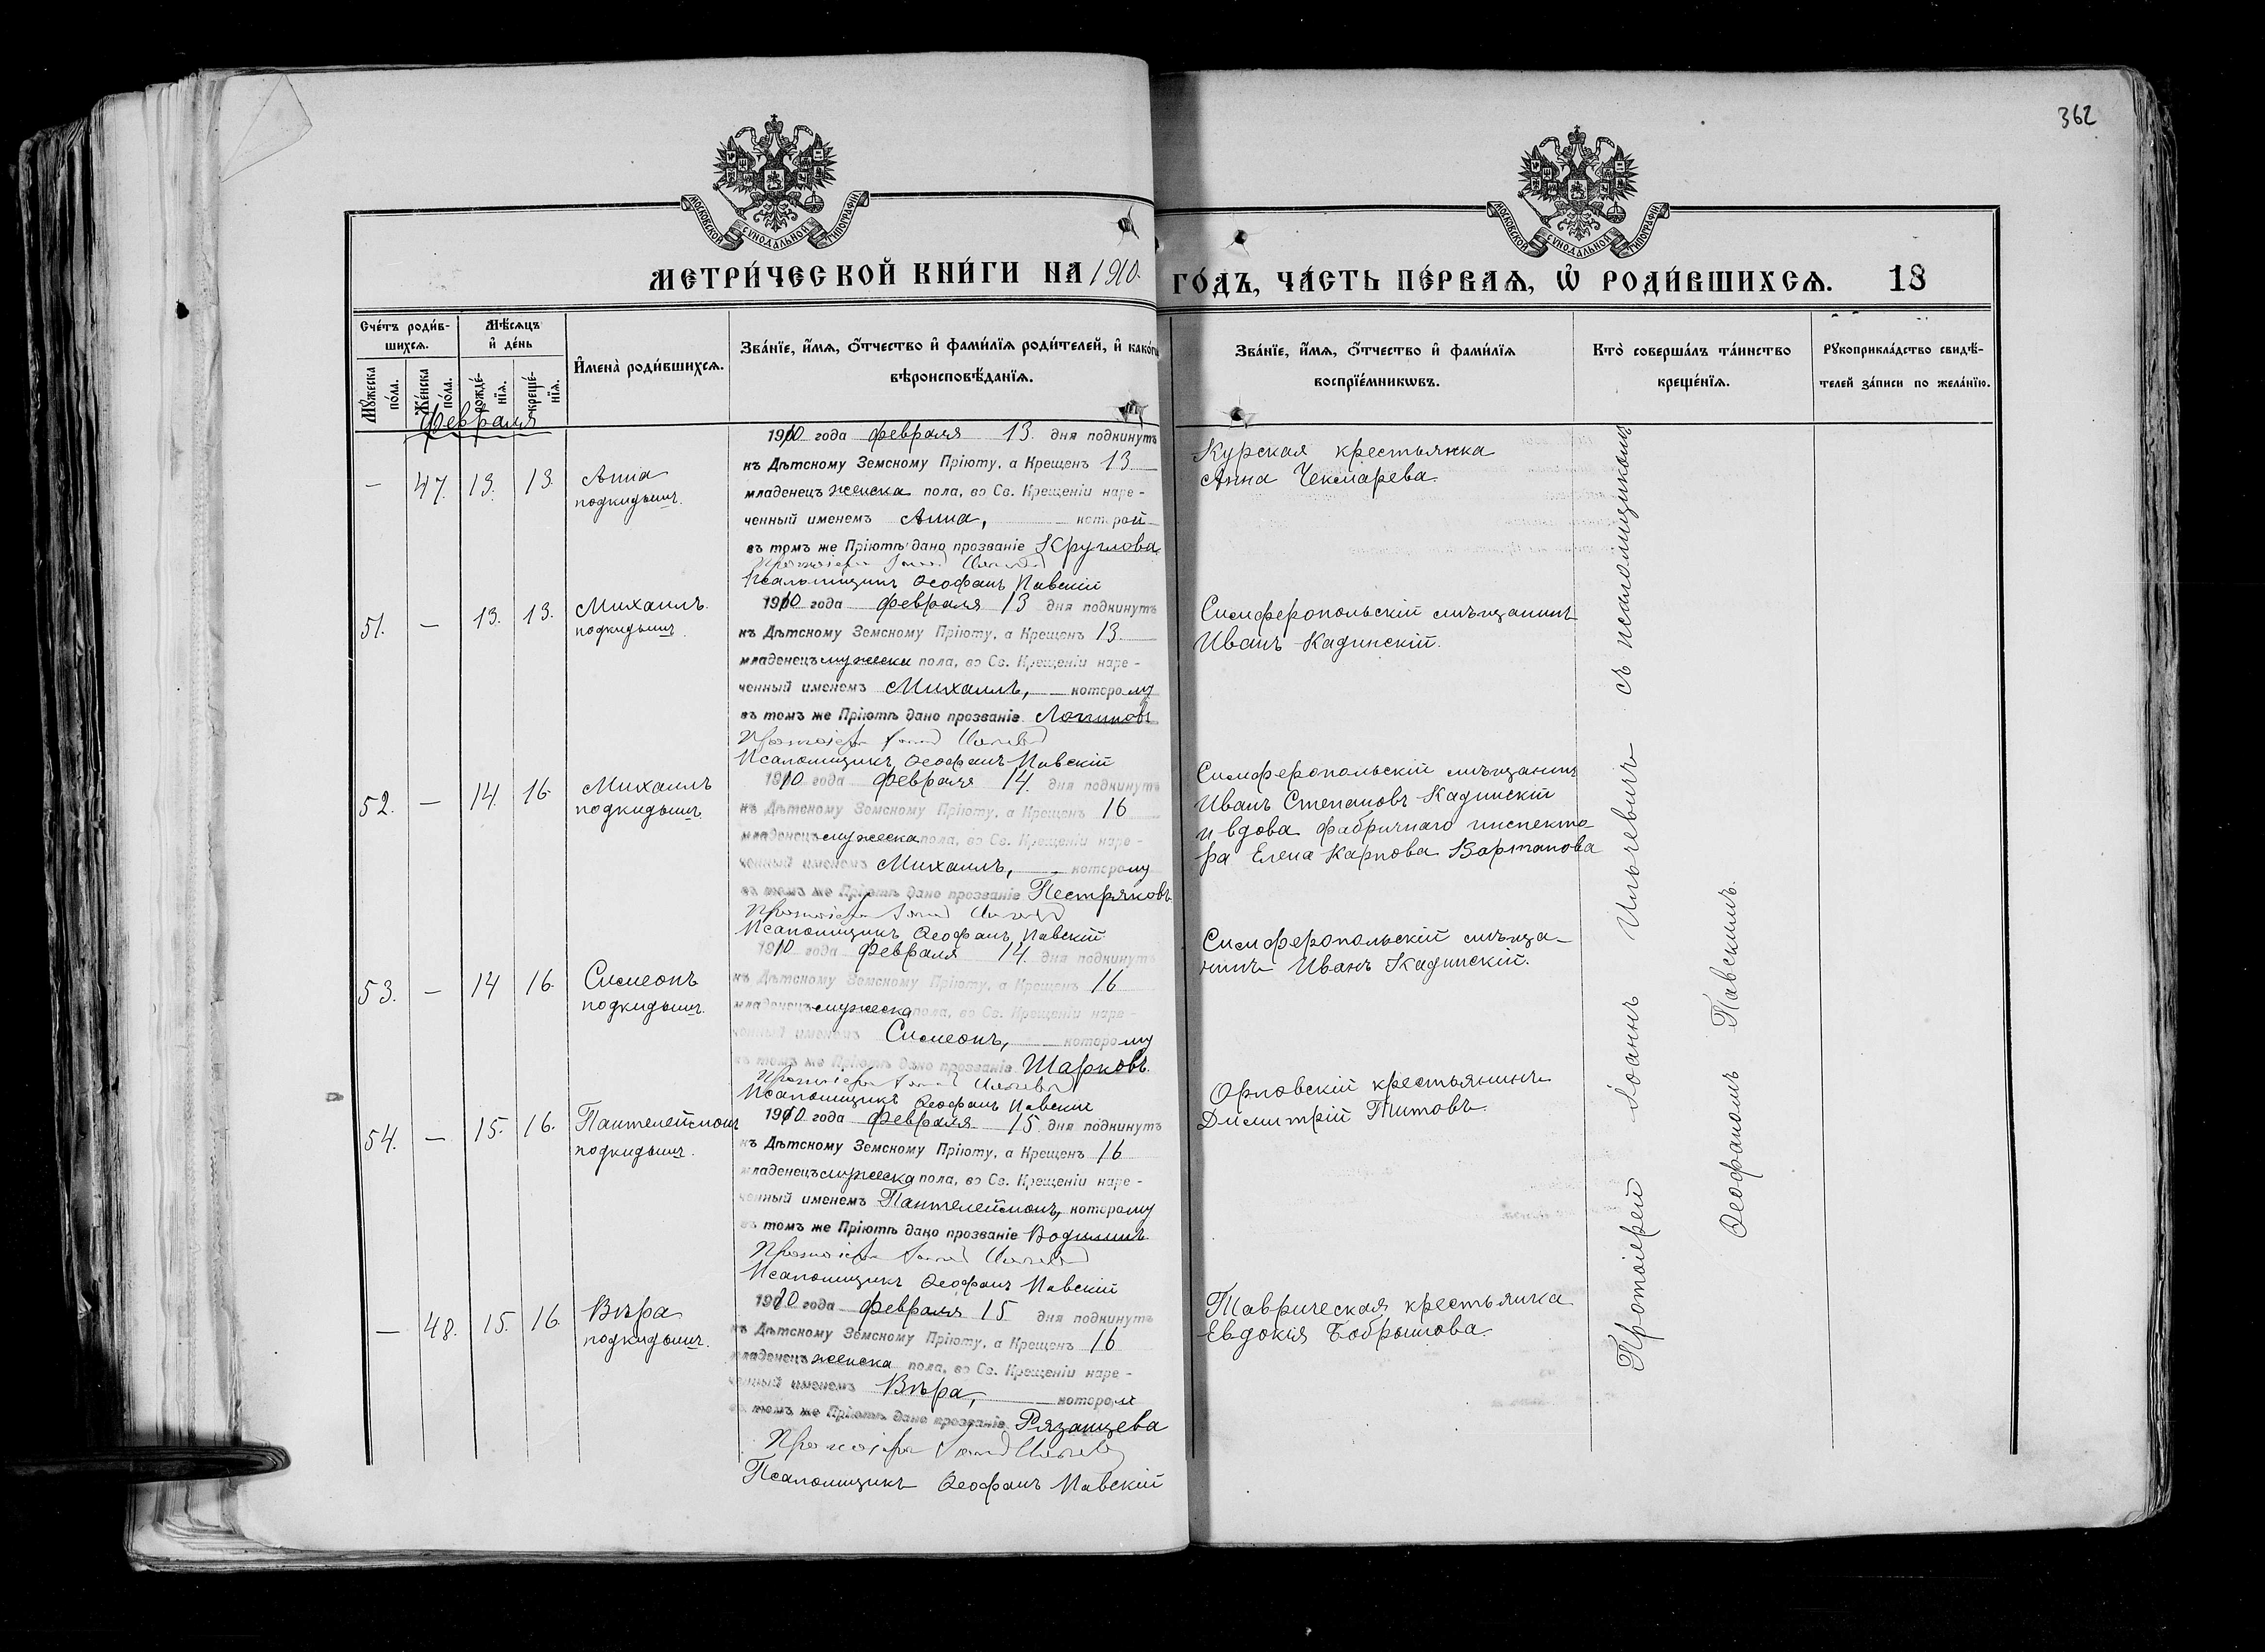 362
МОСКОВСКОЙ СѴНОДАЛЬНОЙ ТИПОГРАФІИ
МОСКОВСКОЙ СѴНОДАЛЬНОЙ ТИПОГРАФІИ
МЕТРИ́ЧЕСКОЙ КНИ́ГИ НА 1910. ГО́ДЪ, ЧА́СТЬ ПЕ́РВАѦ, Ѡ РОДИ́ВШИХСѦ. 18
Сче́тъ роди́в-
шихсѧ.
Мѣ́сѧцъ
и҆ де́нь
Мꙋ́жеска
по́ла.
Же́нска
по́ла.
рожде́-
нїѧ.
креще́-
нїѧ.
И҆мена̀ роди́вшихсѧ.
Зва́нїе, и҆́мѧ, ѻ҆́тчество и҆ фами́лїѧ роди́телей, и҆ како́гѡ
вѣроисповѣ́данїѧ.
Зва́нїе, и҆́мѧ, ѻ҆́тчество и҆ фами́лїѧ
воспрїе́мникѡвъ.
Кто̀ соверша́лъ та́инство
креще́нїѧ.
Рꙋкоприкла́дство свидѣ́-
телей за́писи по жела́нїю.
Февраля
— 47. 13. 13. Анна
подкидышъ.
1910 года февраля 13. дня подкинутъ
къ Дѣтскому Земскому Пріюту, а Крещенъ 13
младенецъ женска пола, во Св. Крещеніи наре-
ченный именемъ Анна, которой
въ томъ же Пріютѣ дано прозваніе Круглова
Псаломщикъ Ѳеофанъ Павскій
Курская крестьянка
Анна Чекмарева.
51. — 13. 13. Михаилъ
подкидышъ.
1910 года февраля 13 дня подкинутъ
къ Дѣтскому Земскому Пріюту, а Крещенъ 13.
младенецъ мужеска пола, во Св. Крещеніи наре-
ченный именемъ Михаилъ, которому
въ томъ же Пріютѣ дано прозваніе
Псаломщикъ Ѳеофанъ Павскій
Симферопольскій мѣщанинъ
Иванъ Кадинскій.
52. — 14. 16. Михаилъ
подкидышъ.
1910 года февраля 14. дня подкинутъ
къ Дѣтскому Земскому Пріюту, а Крещенъ 16
младенецъ мужеска пола, во Св. Крещеніи наре-
ченный именемъ Михаилъ, которому
въ томъ же Пріютѣ дано прозваніе Пестряковъ
Псаломщикъ Ѳеофанъ Павскій
Симферопольскій мѣщанинъ
Иванъ Степановъ Кадинскій
и вдова фабричнаго инспекто-
ра Елена Карпова Вартанова
53. — 14 16. Симеонъ
подкидышъ.
1910 года февраля 14. дня подкинутъ
къ Дѣтскому Земскому Пріюту, а Крещенъ 16
младенецъ мужеска пола, во Св. Крещеніи наре-
ченный именемъ Симеонъ, которому
въ томъ же Пріютѣ дано прозваніе Шарковъ.
Псаломщикъ Ѳеофанъ Павскій
Симферопольскій мѣща-
нинъ Иванъ Кадинскій.
54. — 15. 16. Пантелеймонъ
подкидышъ.
1910 года февраля 15. дня подкинутъ
къ Дѣтскому Земскому Пріюту, а Крещенъ 16
младенецъ мужеска пола, во Св. Крещеніи наре-
ченный именемъ Пантелеймонъ, которому
въ томъ же Пріютѣ дано прозваніе
Псаломщикъ Ѳеофанъ Павскій
Орловскій крестьянинъ
Димитрій Титовъ.
— 48. 15. 16. Вѣра
подкидышъ.
1910 года февраля 15 дня подкинутъ
къ Дѣтскому Земскому Пріюту, а Крещенъ 16
младенецъ женска пола, во Св. Крещеніи наре-
ченный именемъ Вѣра, которой
въ томъ же Пріютѣ дано прозваніе Рязанцева
Псаломщикъ Ѳеофанъ Павскій
Таврическая крестьянка
Евдокія Бобрышова.
Протоіерей Іоаннъ Ильчевичъ съ псаломщикомъ
Ѳеофаномъ Павскимъ.